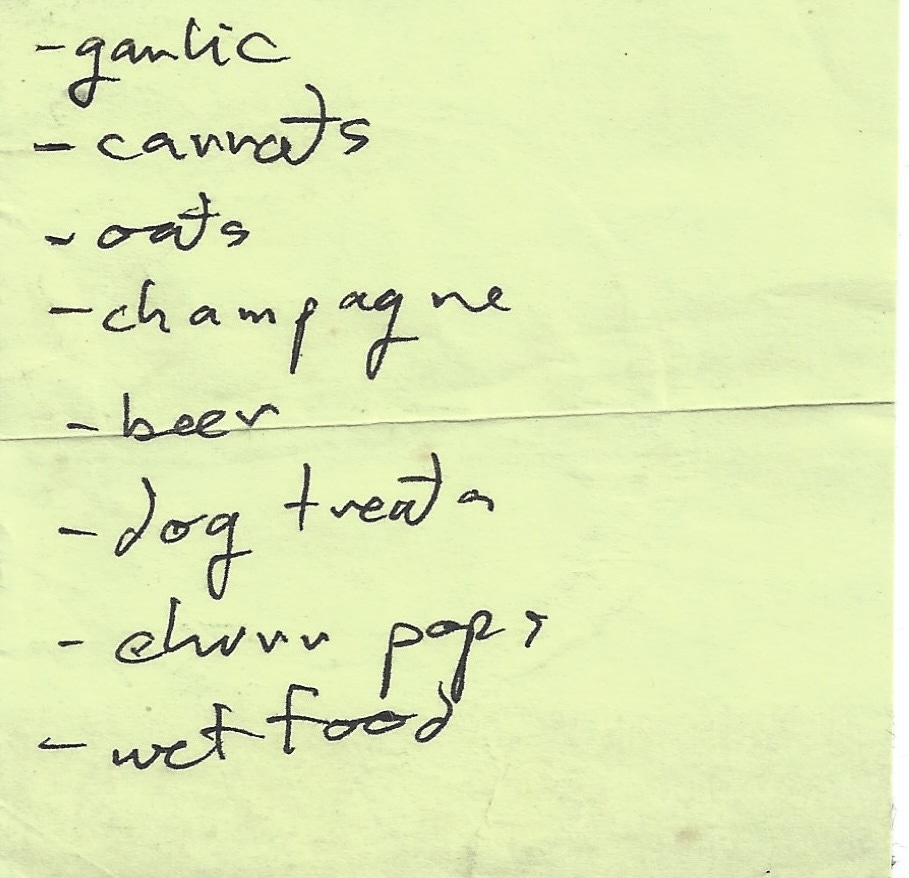 - garlic
- carrots
- oats
- champagne
- beer
- dog treats
- churu pops
- wet food